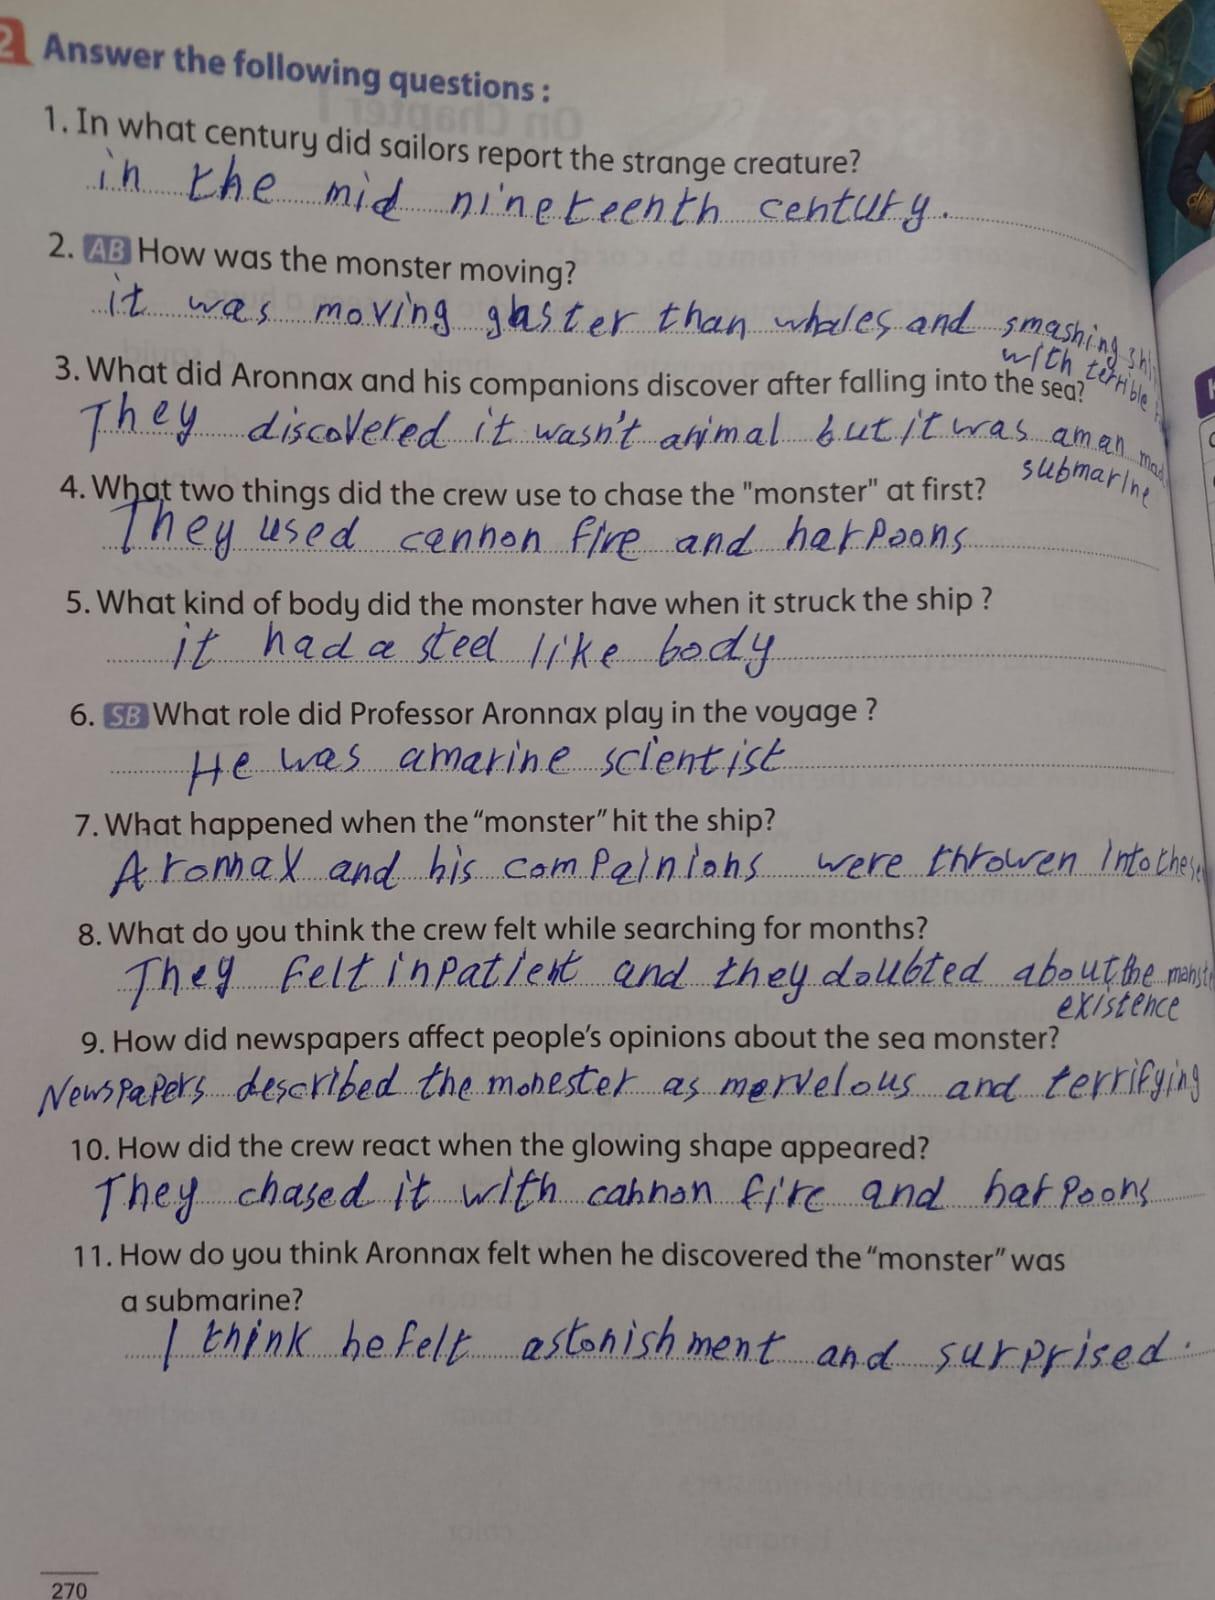 2 Answer the following questions :
1. In what century did sailors report the strange creature?
in the mid nineteenth century.
2. AB How was the monster moving?
it was moving gaster than whales and smashing shi
with terrible
3. What did Aronnax and his companions discover after falling into the sea?
They discovered it wasn't animal but it was aman mad
submarine
4. What two things did the crew use to chase the "monster" at first?
They used cannon fire and harpoons
5. What kind of body did the monster have when it struck the ship ?
it had a steel like body
6. SB What role did Professor Aronnax play in the voyage ?
He was amarine scientist
7. What happened when the "monster" hit the ship?
Aronnax and his compainions were throwen into the se
8. What do you think the crew felt while searching for months?
They felt inpatient and they doubted about the monst
existence
9. How did newspapers affect people's opinions about the sea monster?
Newspapers described the monester as mervelous and terrifying
10. How did the crew react when the glowing shape appeared?
They chased it with cannon fire and harpoons
11. How do you think Aronnax felt when he discovered the "monster" was
a submarine?
I think he felt astonishment and surprised.
270